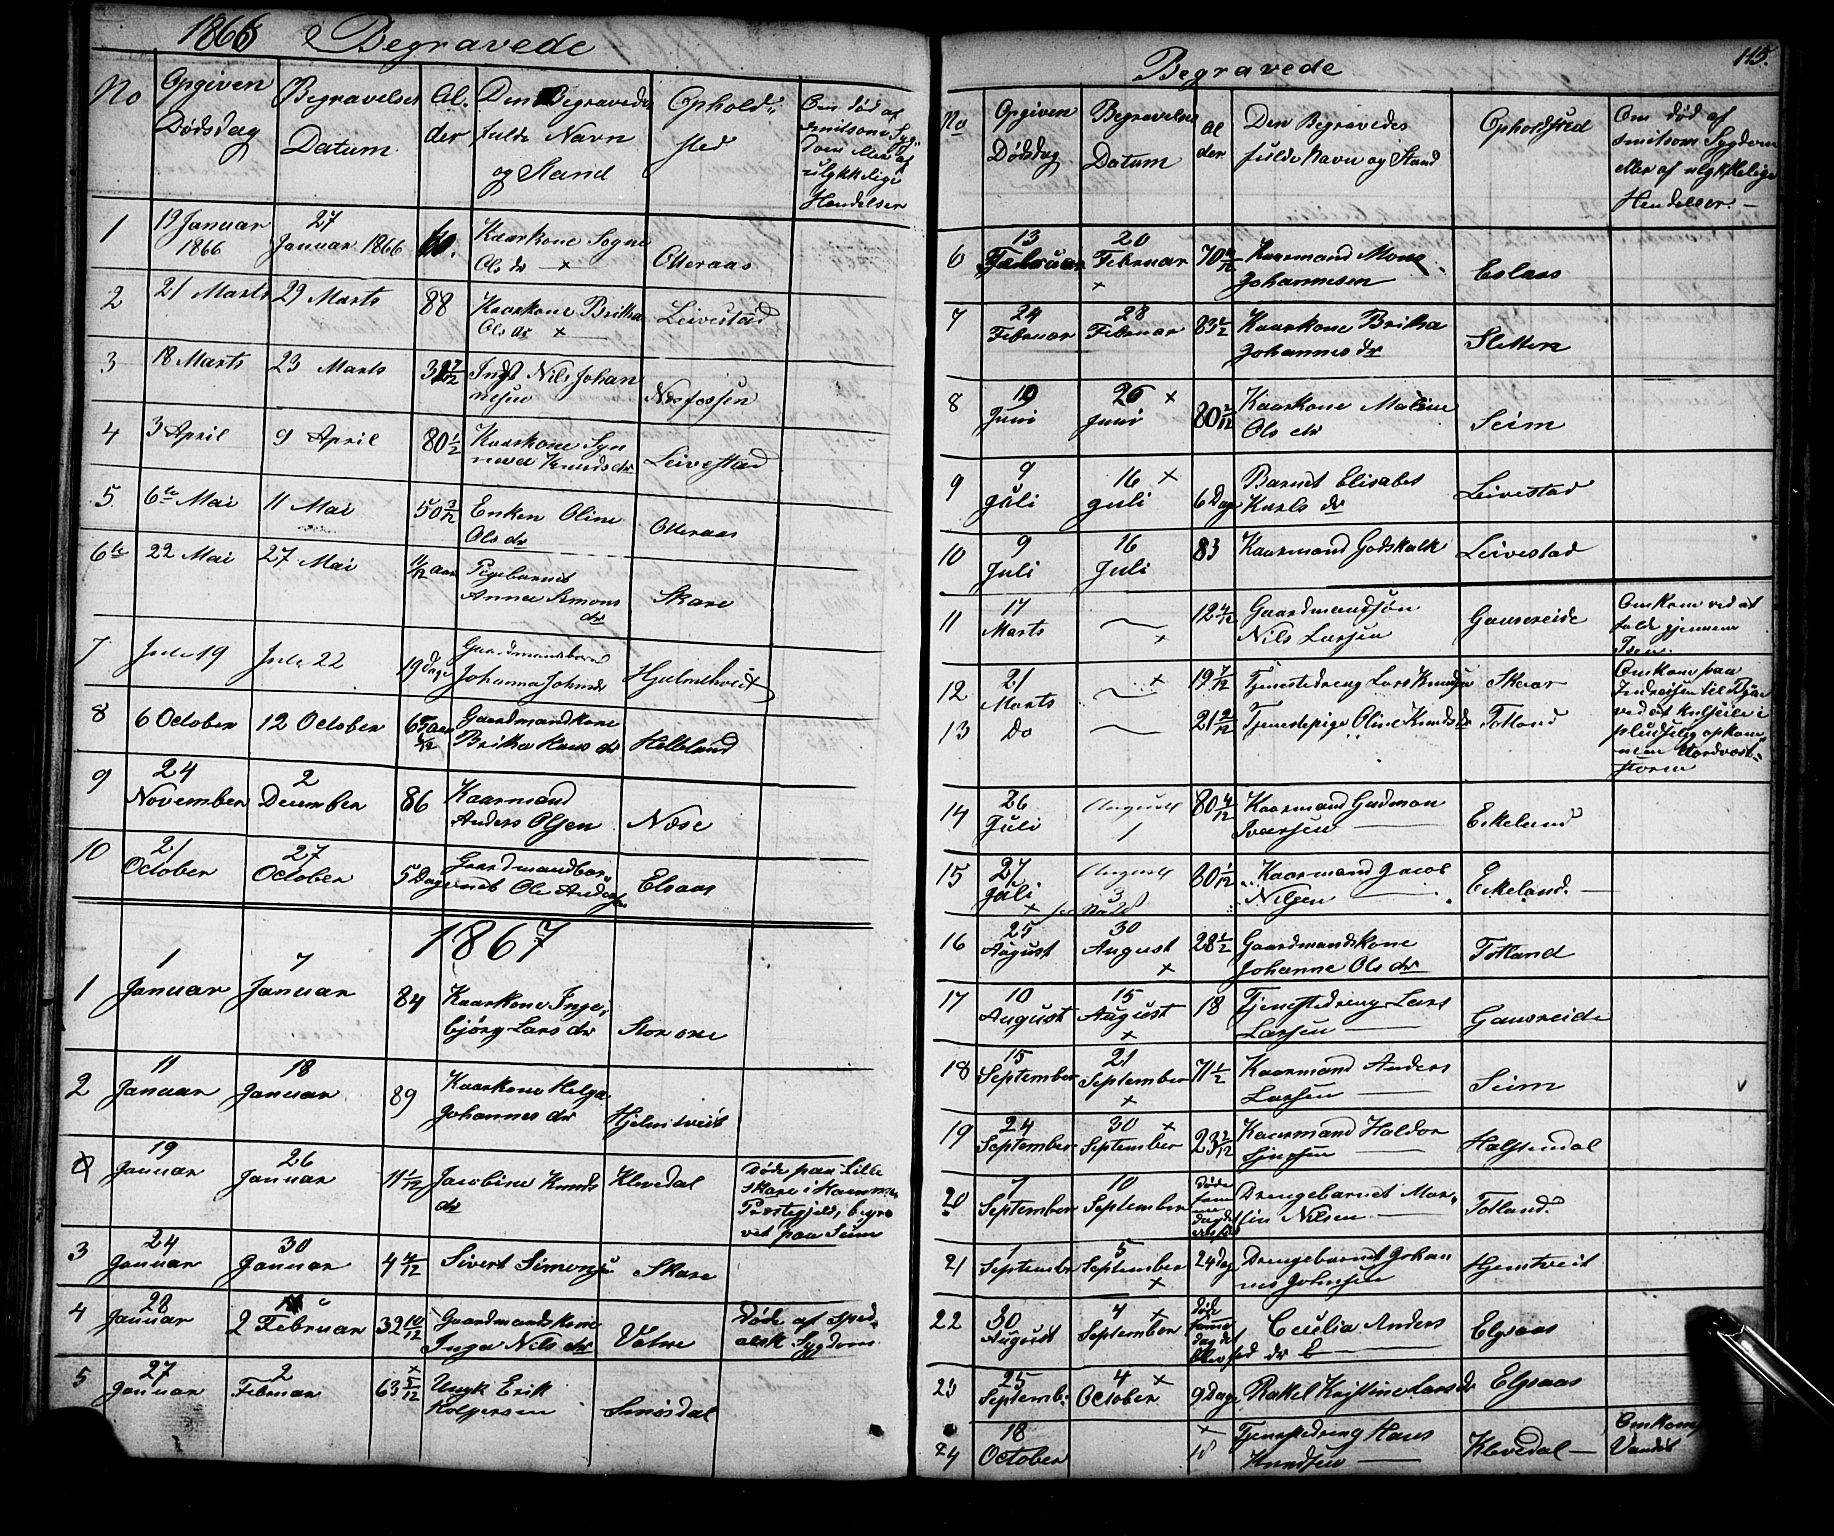 1866 Begravede
No
Opgiven Dødsdag
Begravelses Datum
Alder
Den Begravedes fulde Navn og Stand
Opholdsted
Om død af smitsom Sygdom eller af ulykkelige Hendelser
1 19 Januar 1866 27 Januar 1866 Kaarkone Sogne Ols dr Otteraas
2 21 Marts 29 Marts 88 Kaarkone Britha Ols dr Leivestad
3 18 Marts 23 Marts Nils Johannesen Næsfossen
4 3 April 9 April 80 1/2 Kaarkone Synneva Knuds dr Leivestad
5 6te Mai 11 Mai 50 3/12 Enken Oline Ols dr Otteraas
6te 22 Mai 27 Mai 11/12 aar Pigebarnet Anna Simons dr Skare
7 Jule 19 Jule 22 19 Dage Gaardmandsbarn Johanna Johns dr Hjelmtveit
8 6 October 12 October Gaardmandkone Britha Hans dr Helleland
9 24 November 2 December 86 Kaarmand Anders Olsen Næse
10 21 October 27 October 5 Dage Gaardmandbarnet Ole Andersen Elsaas
1867
1 1 Januar 7 Januar 84 Kaarkone Ingebjörg Lars dr Storore
2 11 Januar 18 Januar 89 Kaarkone Helga Johannes dr Hjelmtveit
19 Januar 26 Januar 11 1/12 Jacobine Knuds dr Klevedal Døde paa Lille Skare i Hammer Præstegjeld, begravet paa Seim
3 24 Januar 30 Januar 4 4/12 Sivert Simonsen Skare
4 28 Januar 2 Februar 32 10/12 Gaardmandskone Inga Nils dr Vatne Døde af Spedalsk Sygdom
5 27 Januar 2 Februar 63 5/12 Ungk Erik Holgersen Smösdal
Begravede 115.
No
Opgiven Dødsdag
Begravelses Datum
Alder
Den Begravedes fulde Navn og Stand
Opholdsted
Om død af smitsom Sygdom eller af ulykkelige Hendelser. —
6 13 Februar 20 Februar × Kaarmand Mons Johannesen Eslaas
7 24 Februar 28 Februar 83 1/2 Kaarkone Britha Johannes dr Slettere
8 19 Juni 26 Juni × 80 2/12 Kaarkone Maline Ols dr Seim
9 9 Juli 16 Juli × 6 Dage Barnet Elisabet Karls dr Leivestad
10 9 Juli 16 Juli 83 Kaarmand Godskalk Leivestad
11 17 Marts × 12 4/12 Gaardmandsøn Nils Larsen Gausereide Omkom ved at falde gjennem Isen.
12 21 Marts × 19 7/12 Tjenestedreng Lars Knudsen Skaar Omkom paa
13 Do 21 2/12 Tjenestepige Oline Knuds dr Totland ved at kulseile i pludselig opkommen Nordvest-storm
14 26 Juli August 1 80 4/12 Kaarmand Gudmon Ivarsen Eikeland
15 27 Juli August 3 80 1/12 Kaarmand Jacob Nilsen Eikeland.
16 25 August 30 August × 28 1/2 Gaardmandskone Johanne Ols dr Totland
17 10 August 15 August × 18 Tjenestedreng Lars Larsen Gausreide
18 15 September 21 September × 71 1/2 Kaarmand Anders Larsen Seim
19 24 September 30 September × Kaarmand Haldor Sjursen Halstendal
20 7 September 10 September Døde samme dag det Drengebarnet Martin Nilsen Totland
21 1 September 5 September × 24 dage Drengebarnet Johannes Johnsen Hjemtveit
22 30 August 4 September × Døde samme dag det blev fød Cecilia Anders dr Elgsaas
23 25 Septemb. 4 October × 9 Dage Rakel Kristine Lars dr Elgsaas
24 18 October × 18 Tjenestedreng Hans Knudsen Klevedal Omkom Vandet